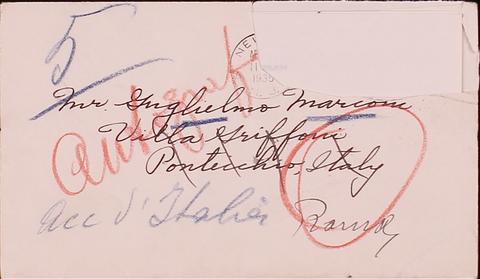 5
Autograph
NE
11
1935
Mr. Guglielmo Marconi
Villa Griffoni
Pontecchio, Italy
Acc d'Italia
Roma